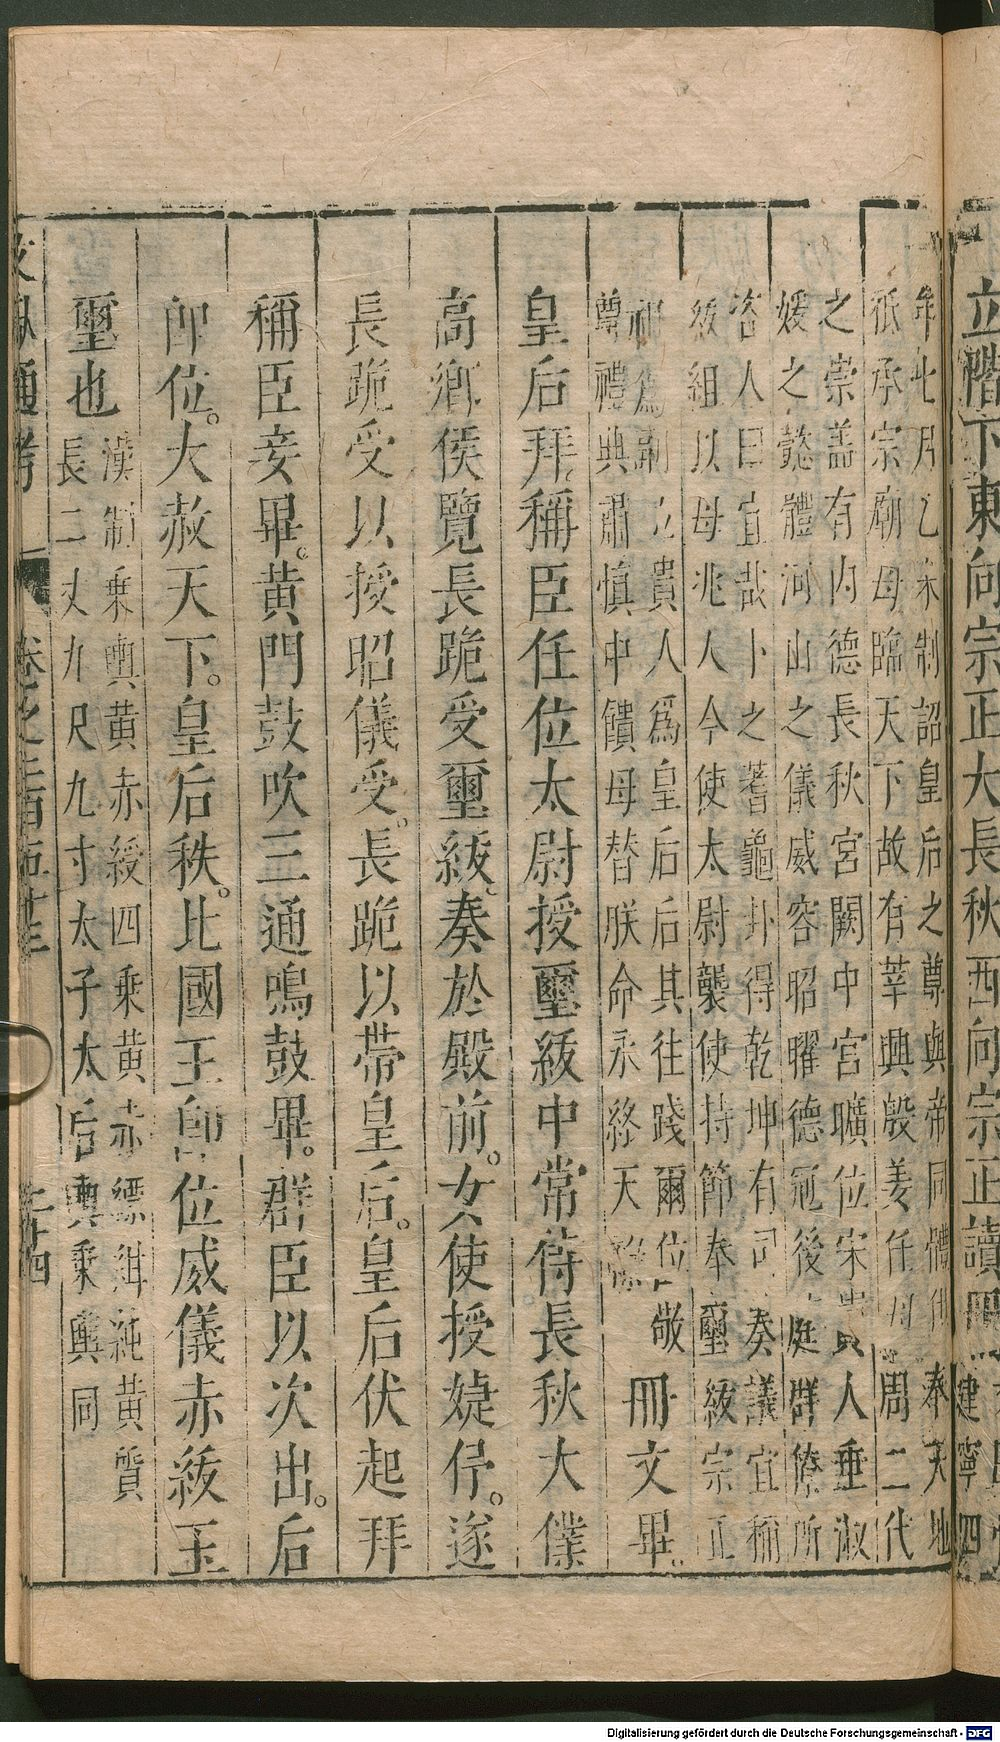 立階下東向宗正大長秋西向宗正讀冊
建寧四
年七月乙未制詔皇后之尊與帝同體供奉天地
祇承宗廟母臨天下故有莘興殷姜任母周二代
之崇蓋有内德長秋宮闕中宮曠位宋貴人垂淑
媛之懿體河山之儀威容昭曜德冠後庭群僚所
咨人曰宜哉卜之蓍龜卦得乾坤有司奏議宜稱
紱組以母兆人今使太尉襲使持節奉璽紱宗正
祖爲副立貴人爲皇后后其往踐爾位敬
尊禮典肅慎中饋毋替朕命永終天祿
冊文畢
皇后拜稱臣任位太尉授璽紱中常侍長秋大僕
高鄉侯覽長跪受璽紱奏於殿前女使授婕伃遂
長跪受以授昭儀受長跪以帶皇后皇后伏起拜
稱臣妾畢黄門鼓吹三通鳴鼓畢群臣以次出后
即位大赦天下皇后秩比國王即位威儀赤紱玉
璽也
漢制乘輿黄赤綬四乘黄赤縹紺純黄質
長二丈九尺九寸太子太后輿乘輿同
文獻通考
卷之二百五十三
二十四
Digitalisierung gefördert durch die Deutsche Forschungsgemeinschaft - DFG